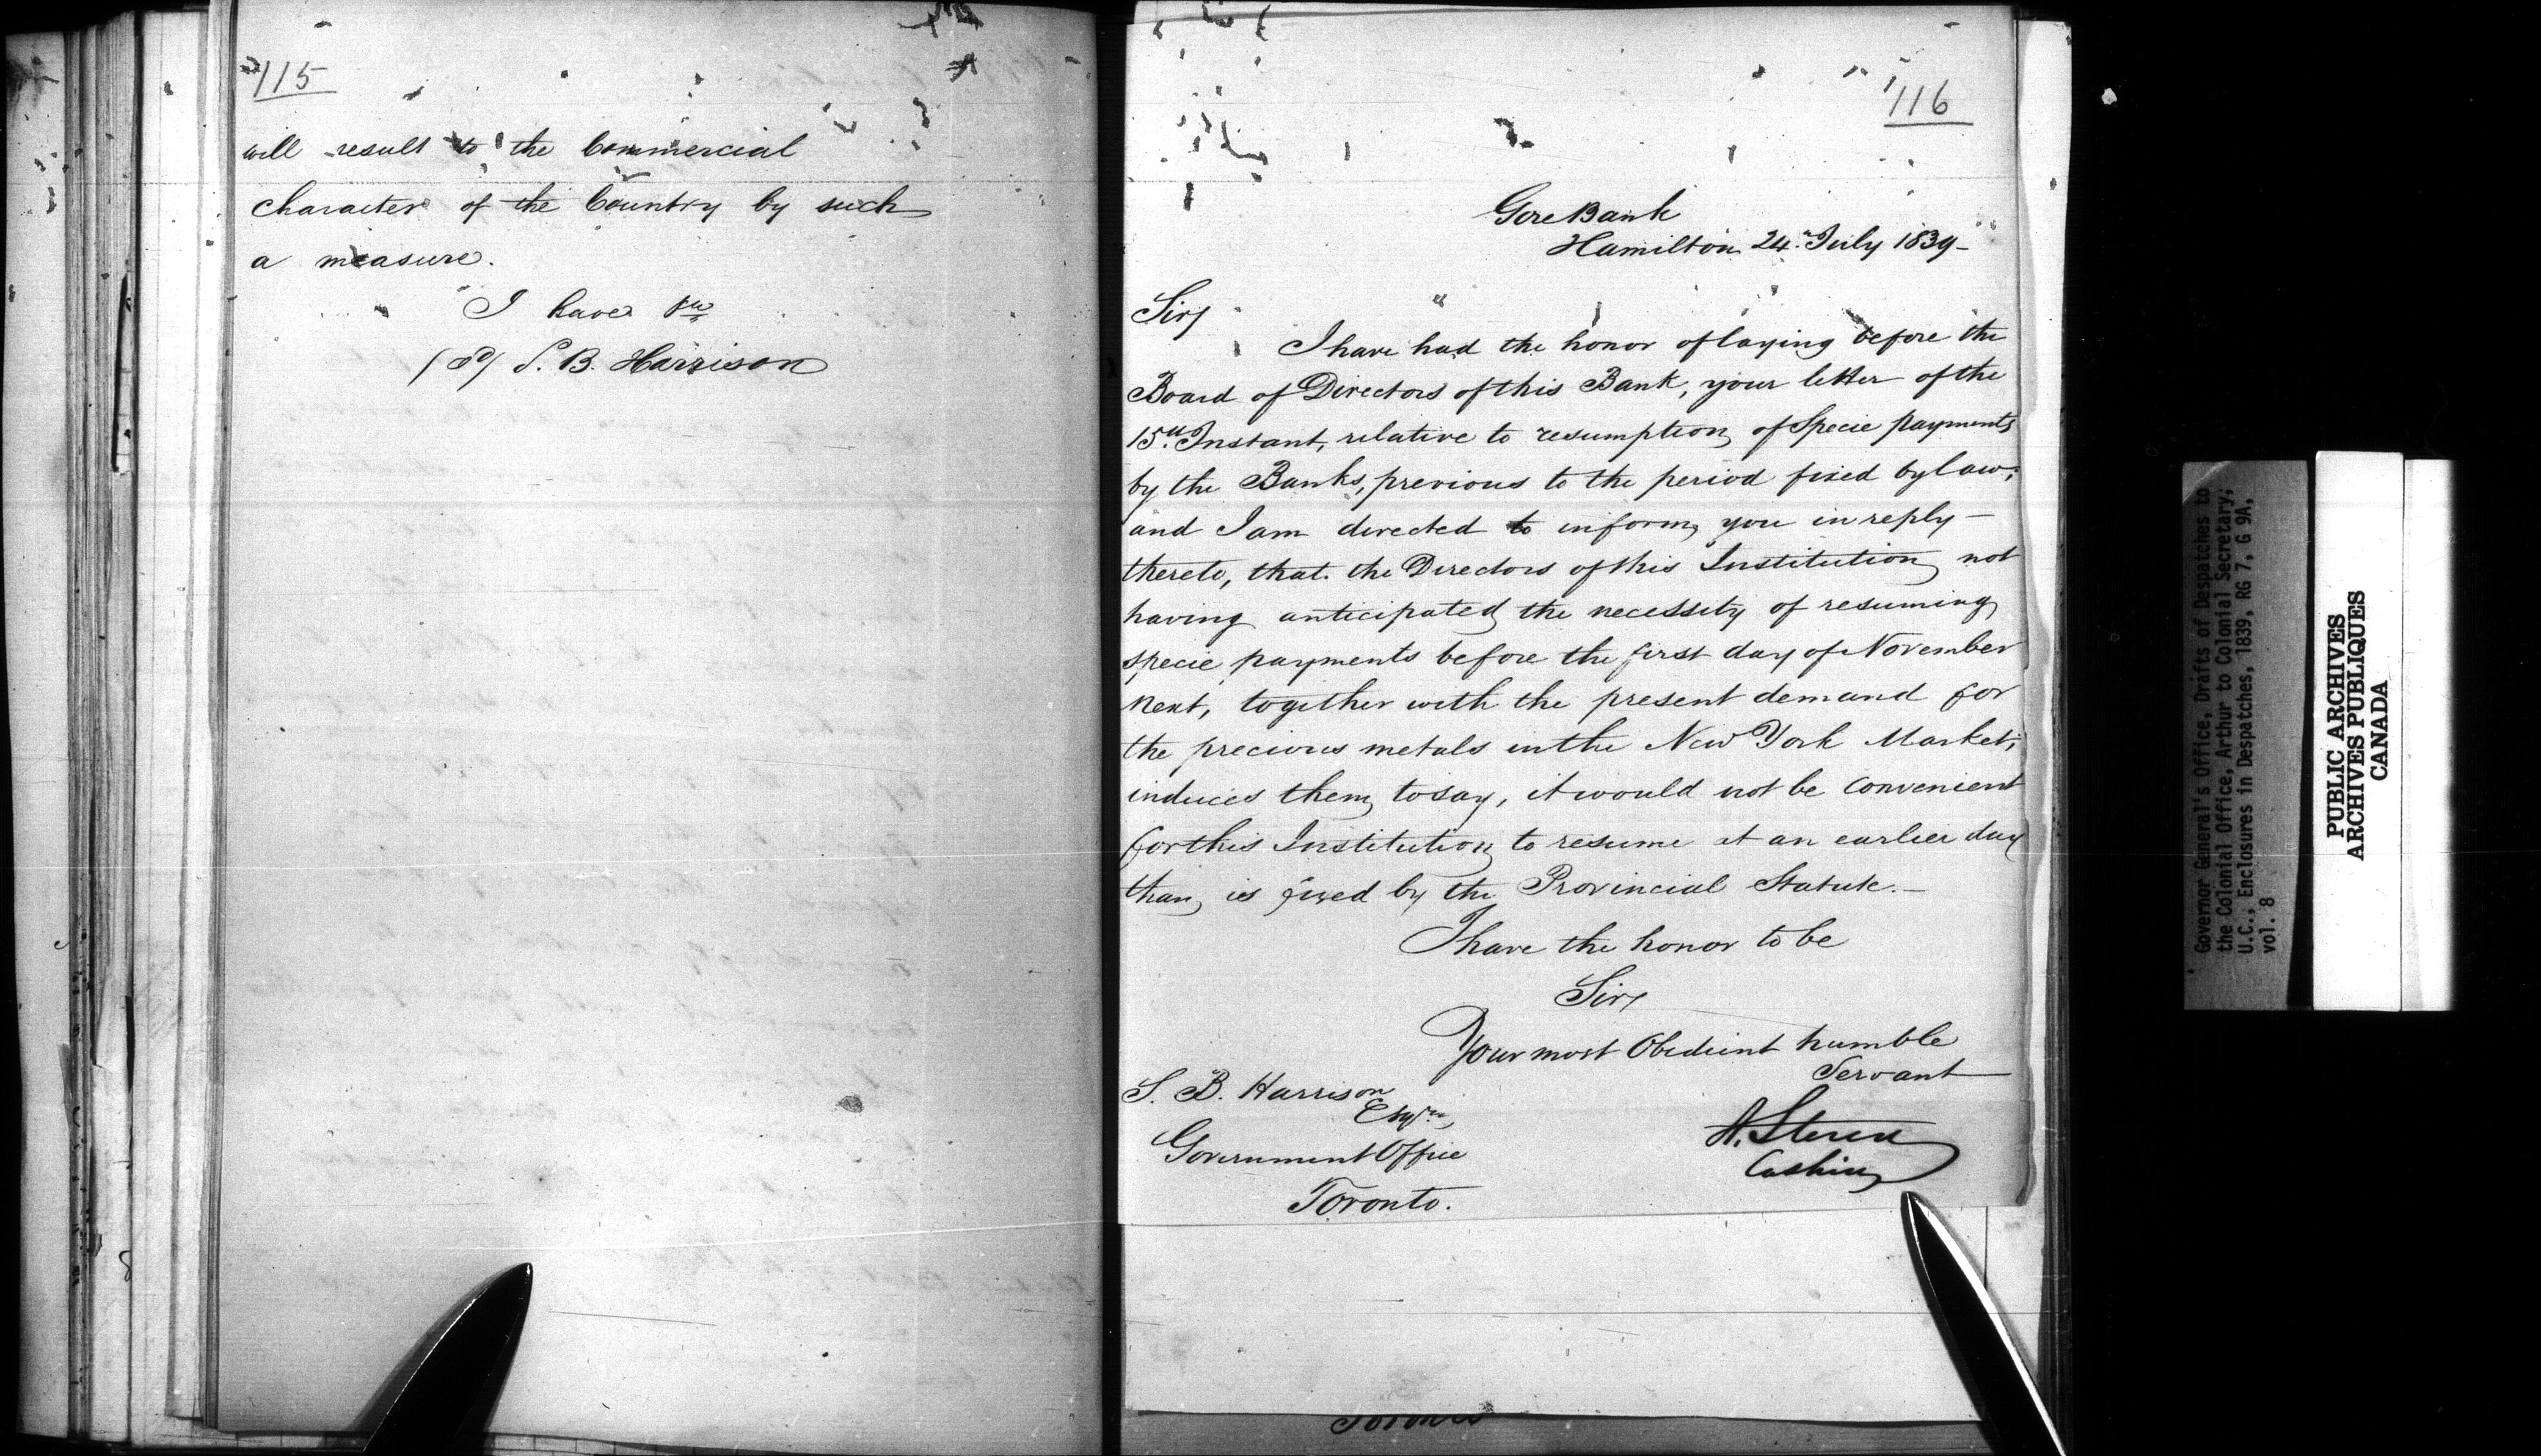 115
will result to the Commercial
character of the Country by such
a measure.
I have &c
S. B. Harrison
116
Gore Bank
Hamilton 24th July 1839-
Sir,
I have had the honor of laying before the
Board of Directors of this Bank, your letter of the
15th Instant, relative to resumption of Specie payments
by the Banks, previous to the period fixed by law;
and I am directed to inform you in reply-
thereto, that the Directors of this Institution not
having anticipated the necessity of resuming
specie payments before the first day of November
next, together with the present demand for
the precious metals in the New York Market;
induces them to say, it would not be convenient
for this Institution to resume at an earlier day
than is fixed by the Provincial Statute.-
I have the honor to be
Sir,
Your most Obedient humble
Servant
S. B. Harrison
Esqre,
Government Office
Toronto.
A. Steven
Cashier
Toronto
Governor General's Office, Drafts of Despatches to
the Colonial Office, Arthur to Colonial Secretary;
U.C., Enclosures in Despatches, 1839, RG 7, G 9A,
vol. 8
PUBLIC ARCHIVES
ARCHIVES PUBLIQUES
CANADA